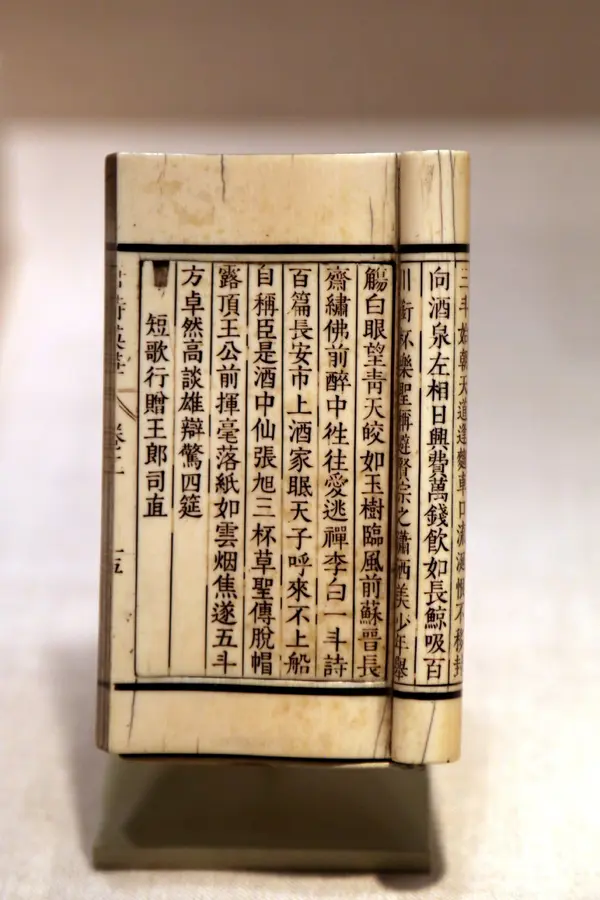 三斗始朝天道逢麴車口流涎恨不移封
向酒泉左相日興費萬錢飲如長鯨吸百
川銜杯樂聖稱避賢宗之瀟洒美少年舉
觴白眼望青天皎如玉樹臨風前蘇晉長
齋繡佛前醉中徃往愛逃禪李白一斗詩
百篇長安市上酒家眠天子呼來不上船
自稱臣是酒中仙張旭三杯草聖傳脫帽
露頂王公前揮毫落紙如雲烟焦遂五斗
方卓然高談雄辯驚四筵
短歌行贈王郎司直